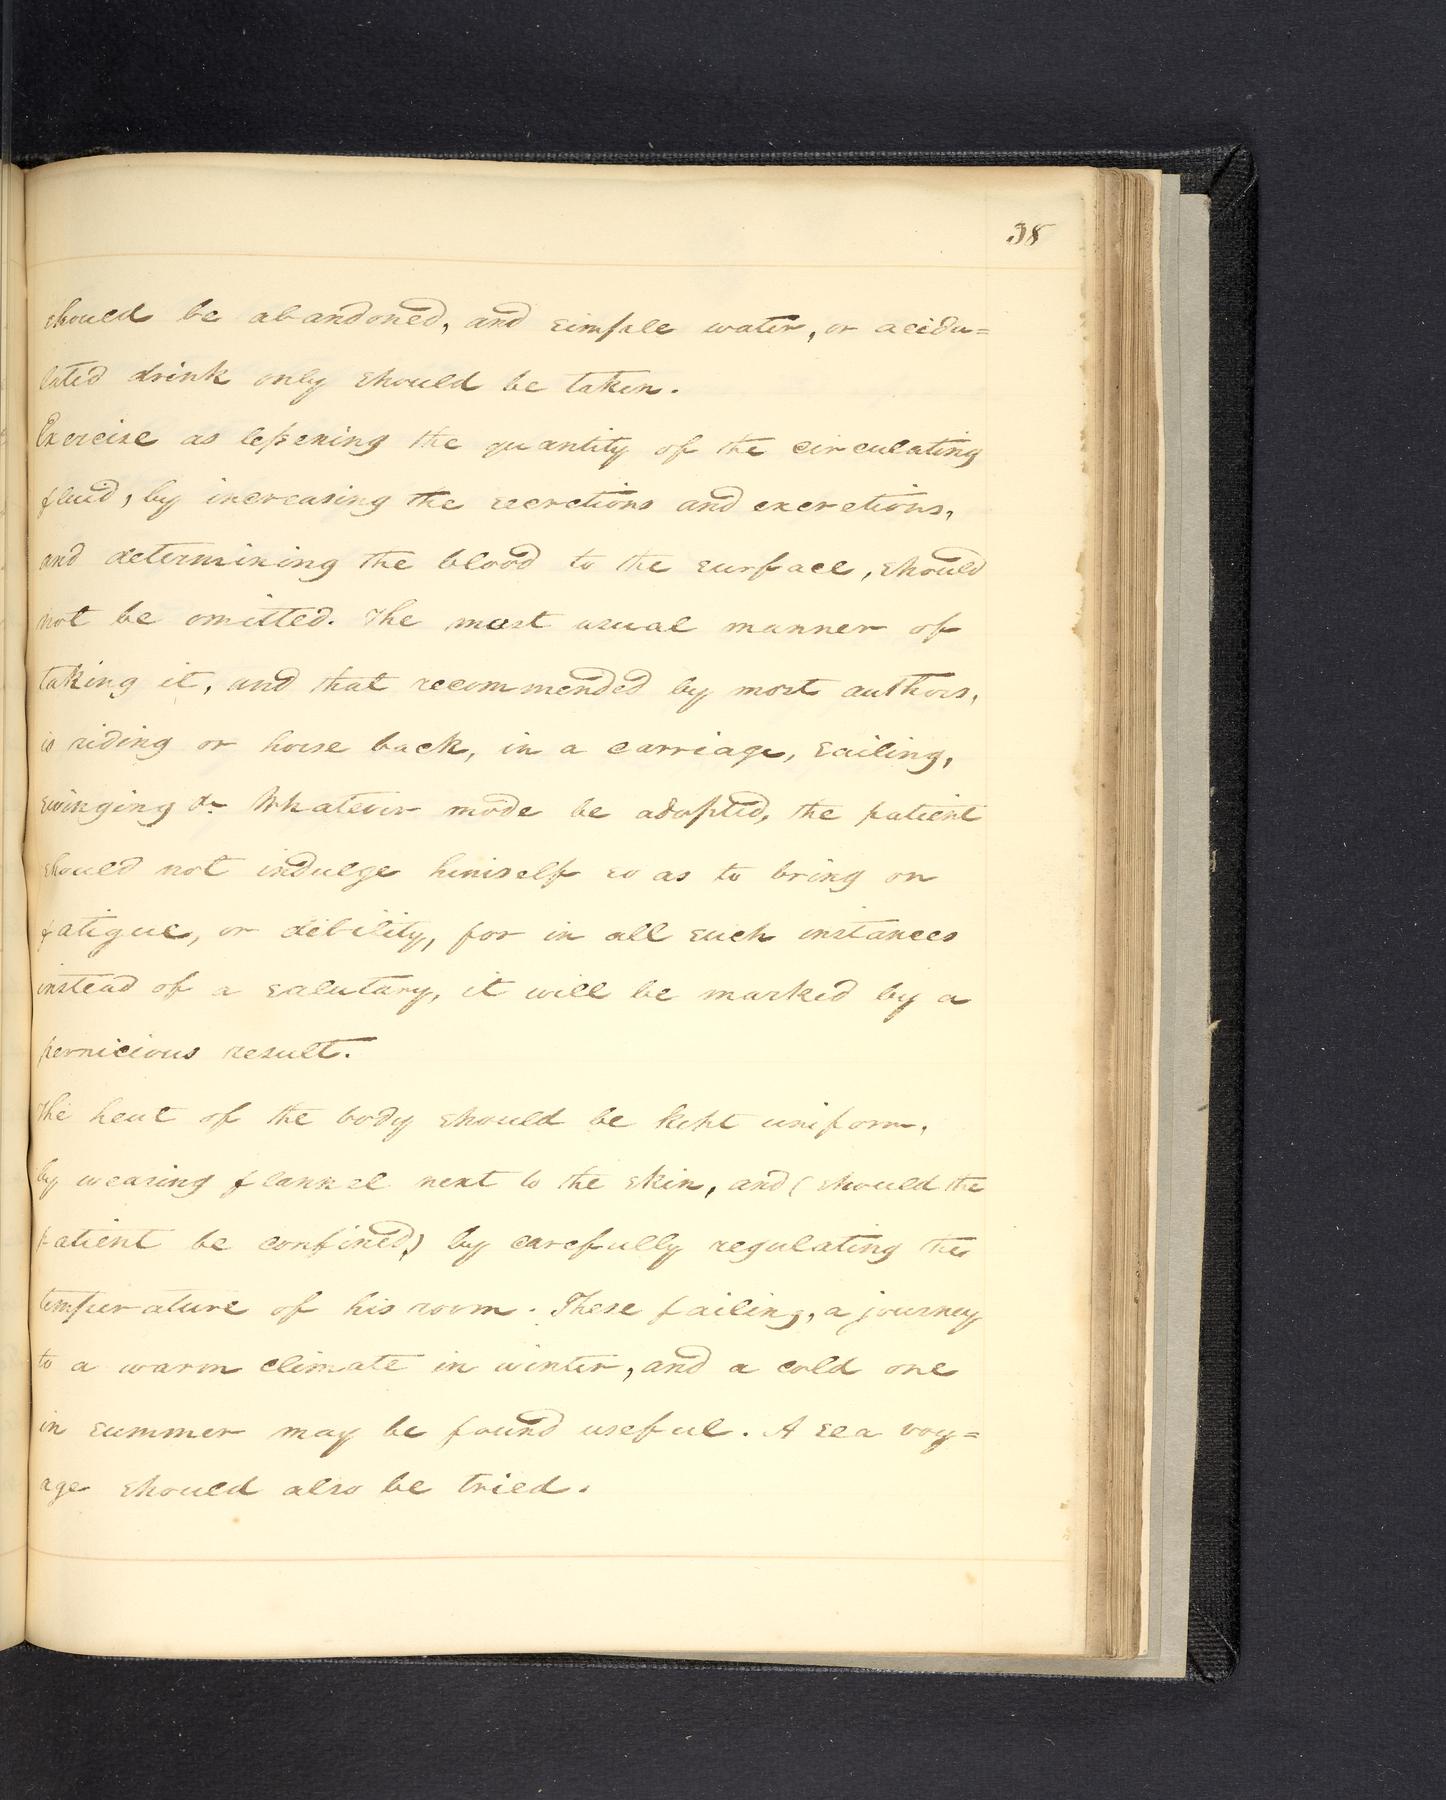 38
should be abandoned, and simple water, or acidu=
lated drink only should be taken.
Exercise as lessening the quantity of the circulating
fluid, by increasing the secretions and excretions,
and determining the blood to the surface, should
not be omitted. The most usual manner of
taking it, and that recommended by most authors,
is riding or horse back, in a carriage, sailing,
swinging &c Whatever mode be adopted, the patient
should not indulge himself so as to bring on
fatigue, or debility, for in all such instances
instead of a salutary, it will be marked by a
pernicious result.
The heat of the body should be kept uniform,
by wearing flannel next to the skin, and (should the
patient be confined,) by carefully regulating the
temperature of his room. These failing, a journey
to a warm climate in winter, and a cold one
in summer may be found useful. A sea voy=
age should also be tried.